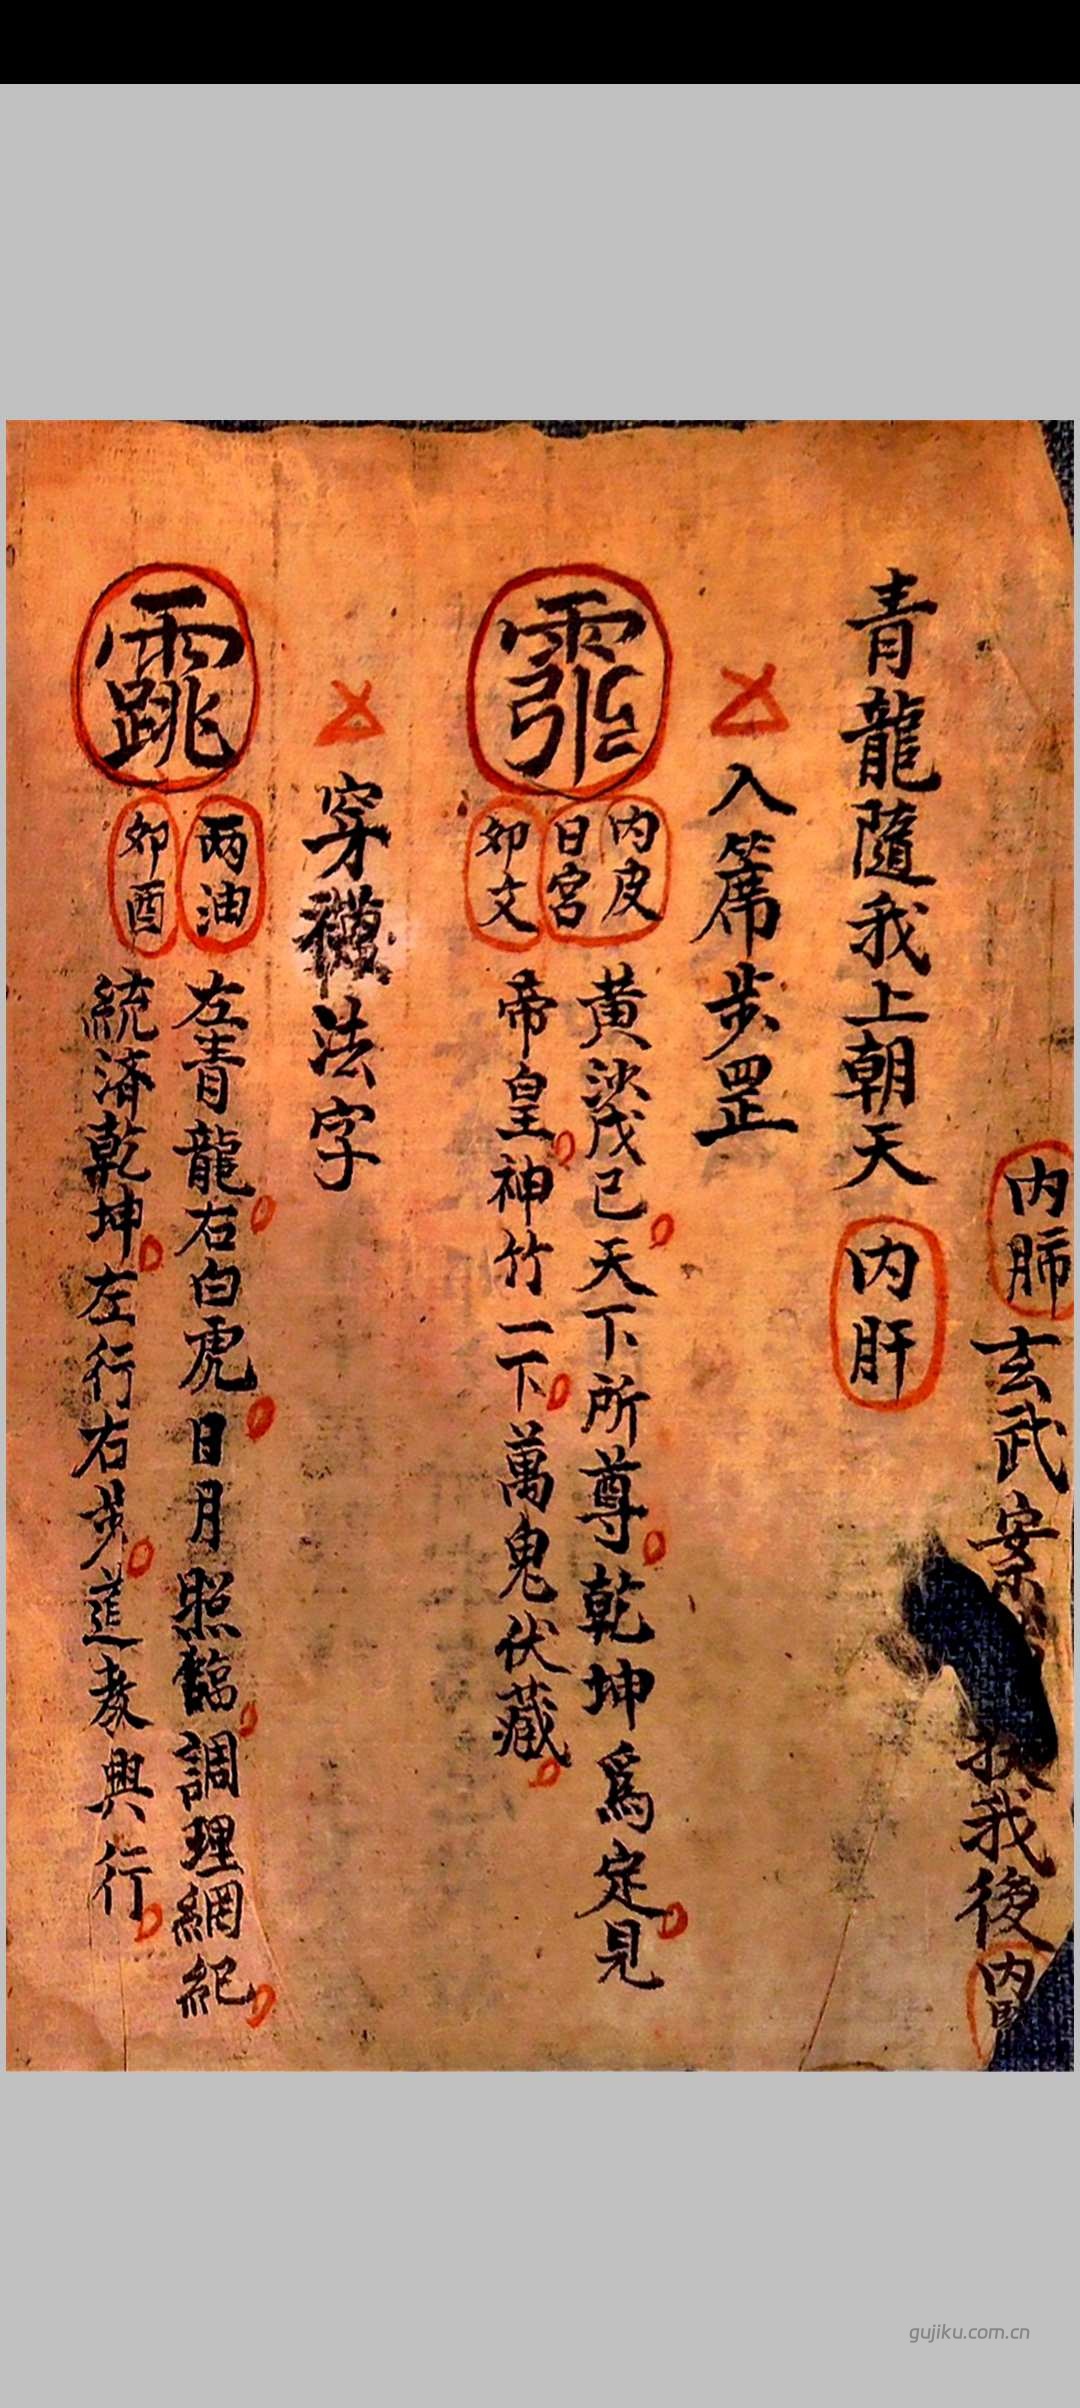 内肺玄武安 扶我後内
青龍隨我上朝天内肝
入席步罡
内皮
日宮
卯文
黄 戊己天下所尊乾坤爲定見
帝皇神竹一下萬鬼伏藏
穿襪法字
两油
卯酉
左青龍右白虎日月照臨調理網紀
統済乾坤左行右步道教興行
gujiku.com.cn